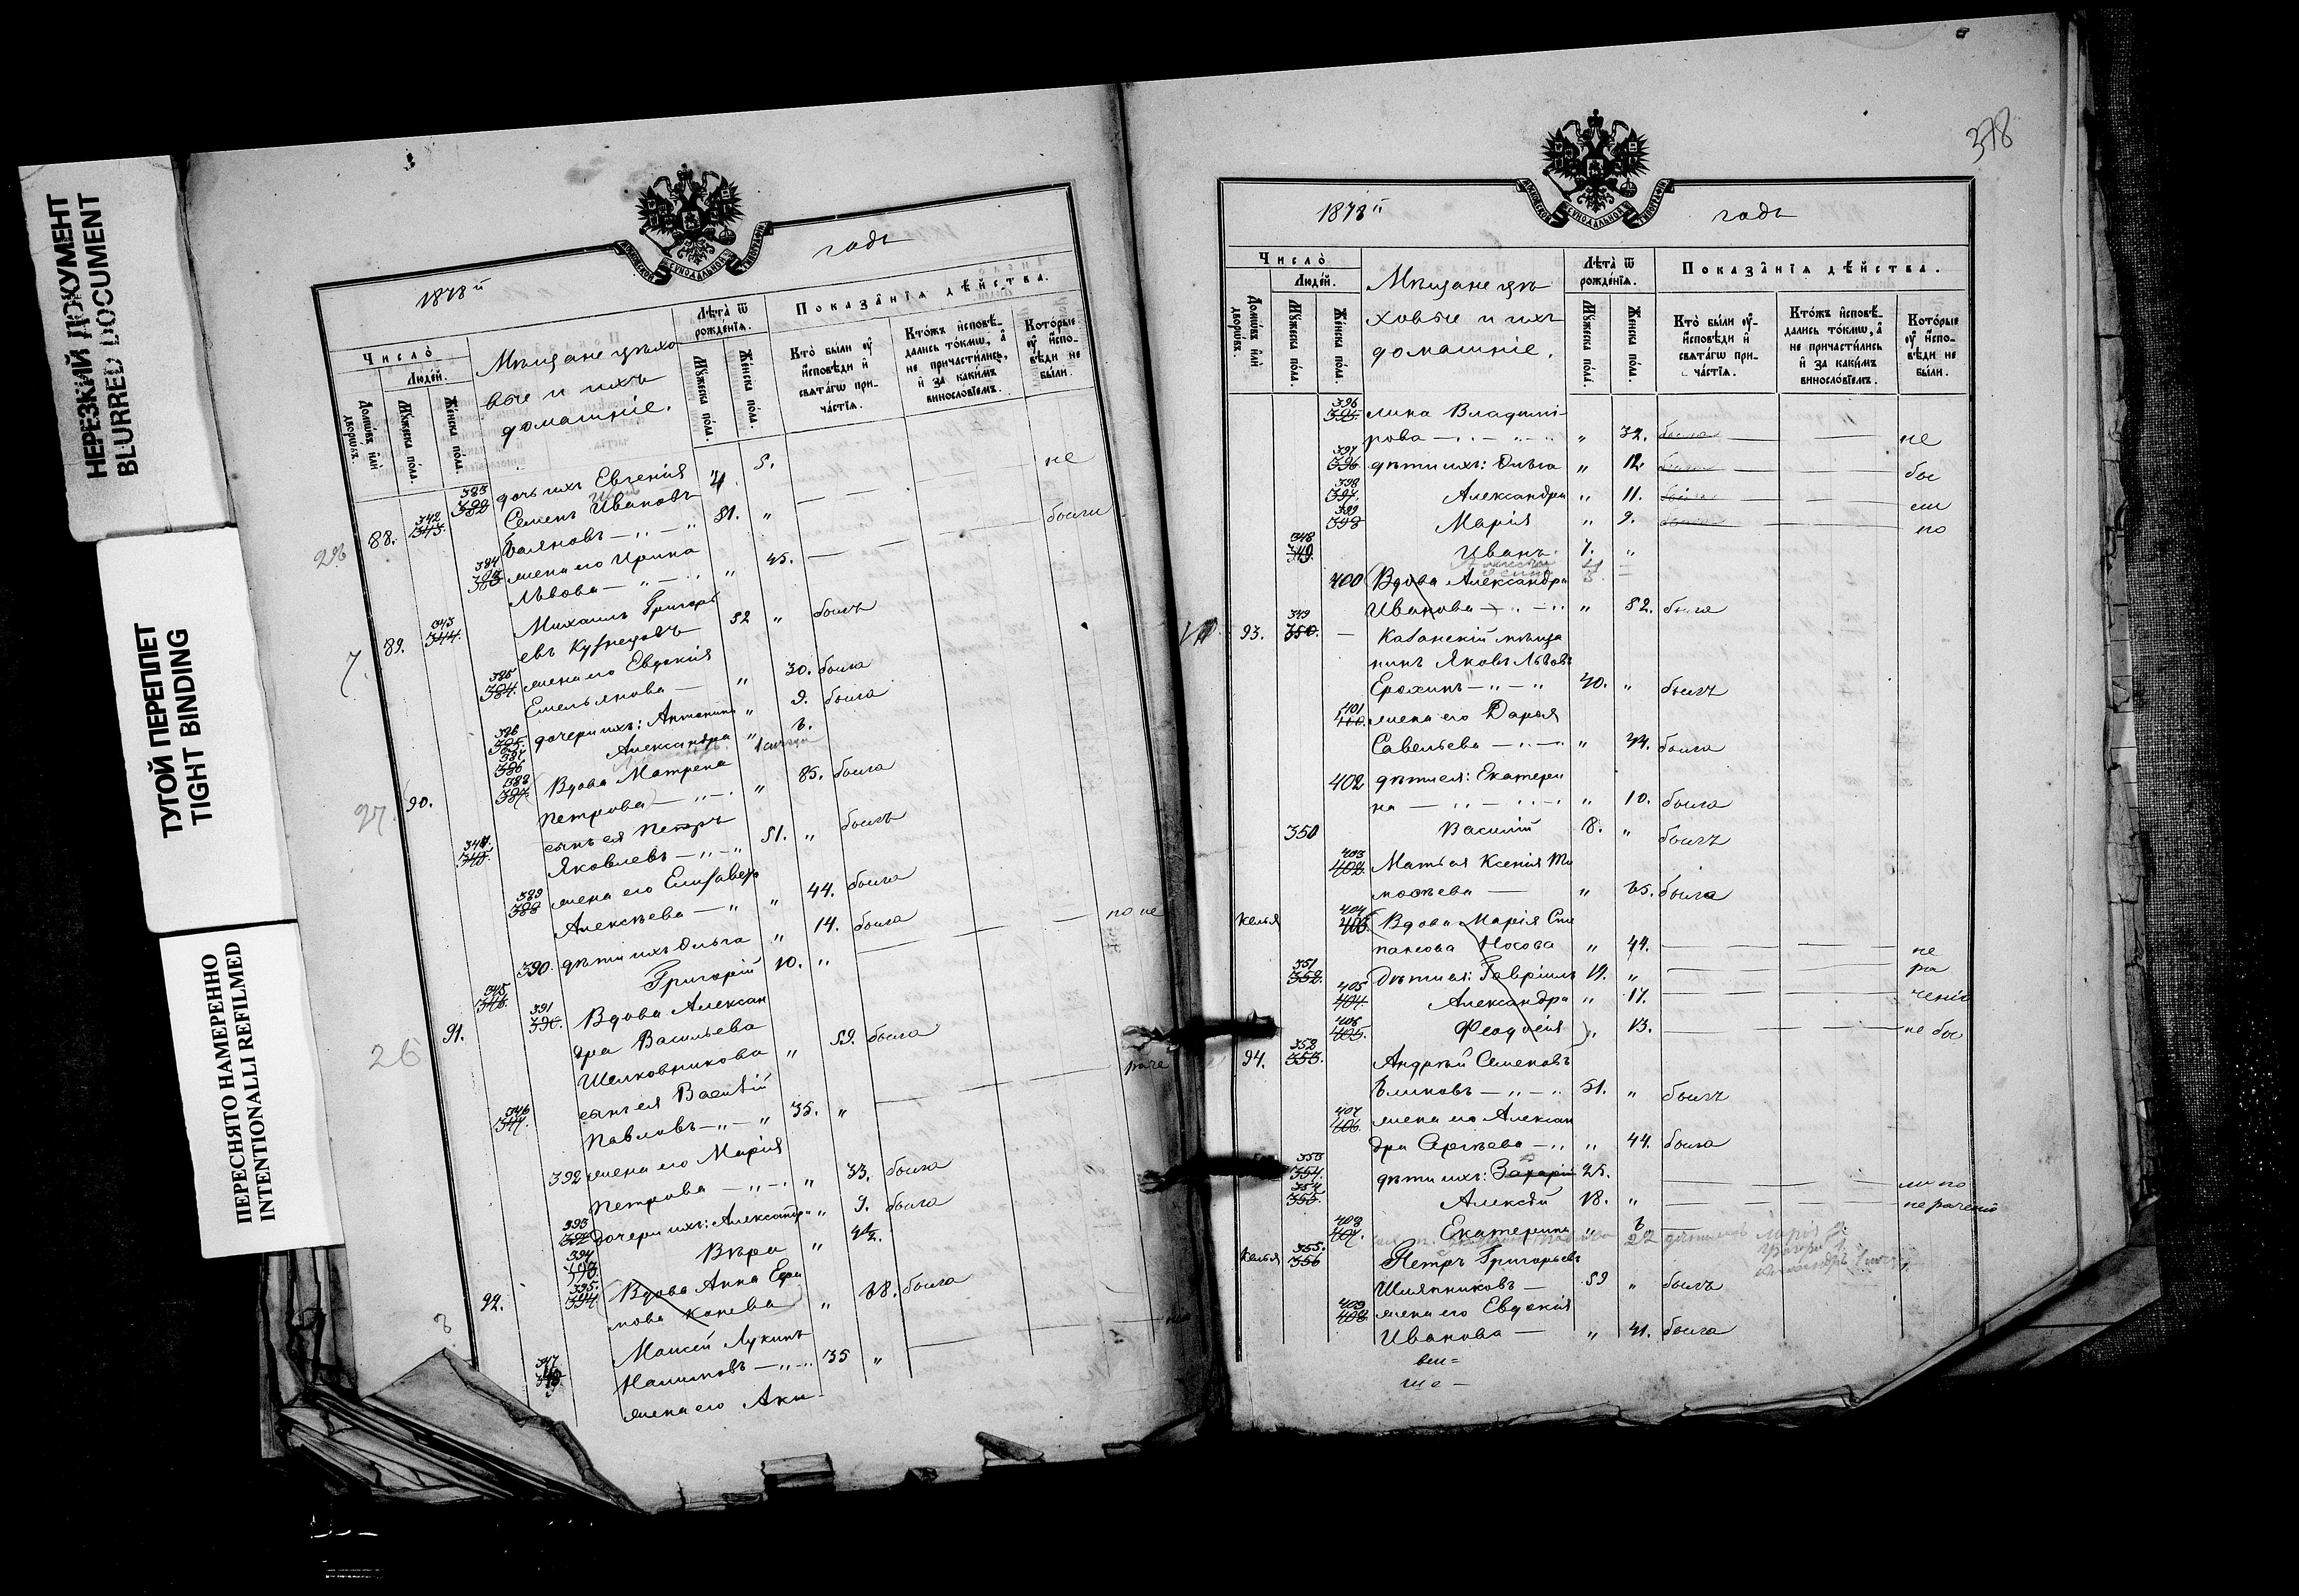 НЕРЕЗКИЙ ДОКУМЕНТ
BLURRED DOCUMENT
ТУГОЙ ПЕРЕПЛЕТ
TIGHT BINDING
ПЕРЕСНЯТО НАМЕРЕННО
INTENTIONALLI REFILMED
МОСКОВСКОЙ СѴНОДАЛЬНОЙ ТИПОГРАФІИ
1878 й годъ
Число̀
Людей.
Домѡвъ илѝ дворѡвъ.
Мꙋжеска пола.
Женска пола.
Мѣщане цѣхо
вые и ихъ
домашніе.
Лѣта̀ ѿ рожденїѧ.
Мꙋжеска пола.
Женска пола.
Показа̂нїѧ дѣйства.
Кто̀ были ᲂу҆ и҆споведи и҆ свѧтагѡ причастїѧ.
Кто́жъ и҆сповѣдались то́кмѡ, а҆ не причастились, и҆ за какимъ винословїемъ.
Которые ᲂу҆ и҆сповѣди не были.
383 382 дочь ихъ Евгенія " 5. не
88. 342 343. Семенъ Ивановъ
Баляновъ — " — " 51. " были
384 383 жена его Ирина
Львова — " — " " 45.
7. 89. 343 344. Михаилъ Григорь
евъ Кузнецовъ 52 " былъ
385 384. жена его Евдокія
Емельянова — " 30. была
386 385. дочери ихъ: Антонина " 9. была
387 386 Александра "
27. 90. 388 387 Вдова Матрена
Петрова — " — " 85. была
344. 345. сынъ ея Петръ
Яковлевъ — " — " 51. " былъ
389 388 жена его Елизавета
Алексѣева — " " 44. была
390. дѣти ихъ Ольга " 14. была
345 346. Григорій 10. " по не
26 91. 391 390. Вдова Алексан
дра Васильева
Шелковникова " 59. была
346 347. сынъ ея Василій
Павловъ — " — " 35. " раче
392 жена его Марія
Петрова — " — " 33. была
393 392 дочери ихъ: Александра " 9. была
394 Вѣра " 4½.
92. 395. 394 Вдова Анна Ефи
мова Канева " 68. была
347 Моисей Лукинъ
35 "
жена его Аки-
378
МОСКОВСКОЙ СѴНОДАЛЬНОЙ ТИПОГРАФІИ
1878 й годъ
Число̀
Людей.
Домѡвъ илѝ дворѡвъ.
Мꙋжеска пола.
Женска пола.
Мѣщане цѣ
ховые и ихъ
домашніе.
Лѣта̀ ѿ рожденїѧ.
Мꙋжеска пола.
Женска пола.
Показа̂нїѧ дѣйства.
Кто̀ были ᲂу҆ и҆споведи и҆ свѧтагѡ причастїѧ.
Кто́жъ и҆сповѣдались то́кмѡ, а҆ не причастились, и҆ за какимъ винословїемъ.
Которые ᲂу҆ и҆сповѣди не были.
396 395 лина Владимі-
рова — " — " — " " 32. была не
397 396 дѣти ихъ: Ольга " 12. была бы
398 397. Александра " 11. была ли
399 398 Марія " 9. была по
348 349. Иванъ. 7. "
400 Вдова Александра
Иванова — " — " " 52. была
93. 349 350. — Казанскій мѣща
нинъ Яковъ Львовъ
Ерохинъ — " — " 40. " былъ
401 400. жена его Дарья
Савельева — " — " " 34. была
402 дѣти ея: Екатери
на — " — " — " " 10. была
350 Василій 8. " былъ
403 402. Мать ея Ксенія Ти
моѳеева — " 75. была
Келья 404 403. Вдова Марія Сте
панова Носова " 44. не
351 352. Дѣти ея: Гавріилъ 19. " ра
405 404. Александра " 17. ченію
406 405. Феодосія " 13. не бы
94. 352 353. Андрей Семеновъ
Блиновъ — " — " 51. " былъ
407 406. жена его Алексан
дра Сергѣева — " " 44. была
353 354. дѣти ихъ: Захарій 25. ли по
354 355. Алексѣй 18. " нераченію
408 407. Екатерина "
Келья 355. 356 Петръ Григорьевъ
Шляпниковъ — 59 " былъ
409 408. жена его Евдокія
Иванова — " 41. была